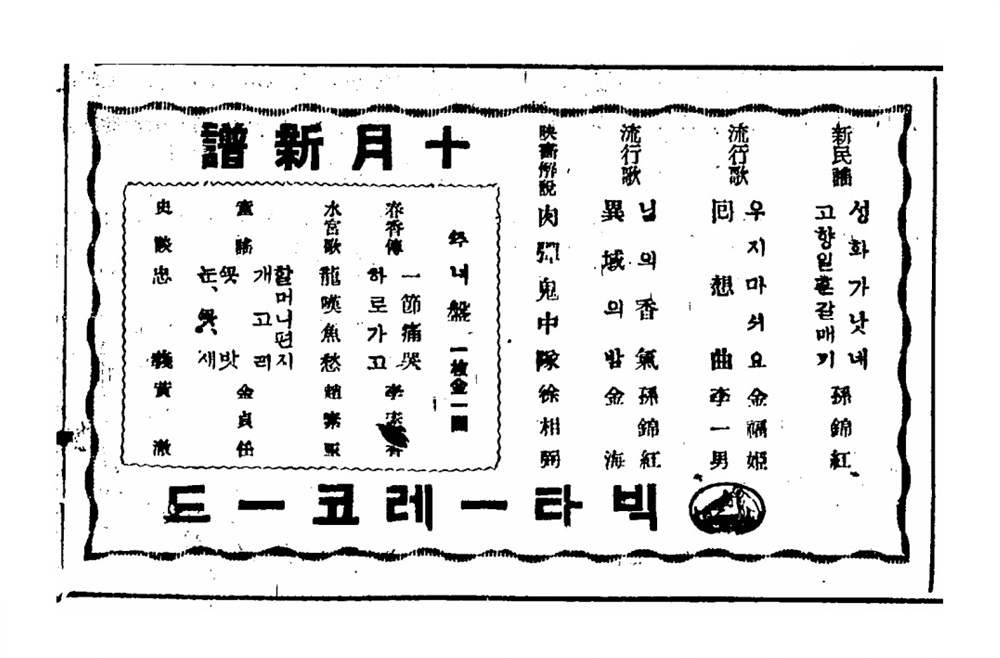 十月新譜
新民謠
성화가낫네
고향일흔갈매기
孫錦紅
流行歌
우지마쇠요 金福姬
回想曲 李一男
流行歌
님의香氣 孫錦紅
異域의밤 金海
映畵解說
肉彈鬼中隊 徐相弼
니盤 一枚金一圓
春香傳
一節痛哭
하로가고
李
水宮歌
龍嘆魚愁
童謠
할머니편지
개고리
꼿밧
눈、꼿、새
金貞任
史談
忠義
黃澈
빅타ー레코ー드